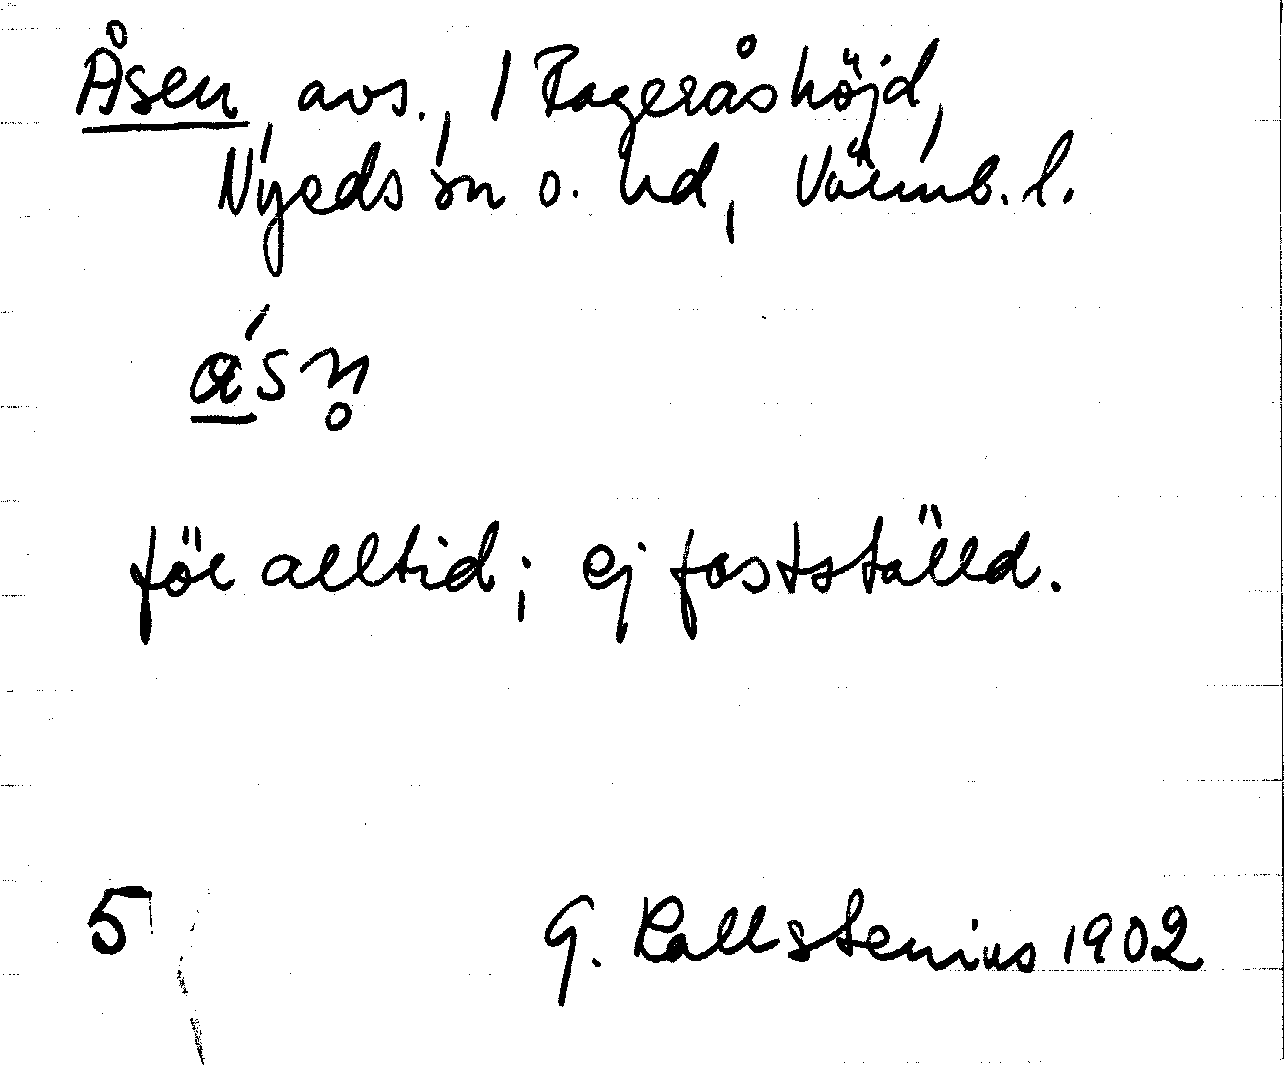 Åsen, avs., 1 Rageråshöjd,
Nyeds sn o. hd, Värmb. l.
ásn̥
för alltid; ej fastställd.
5 G. Kallstenius 1902